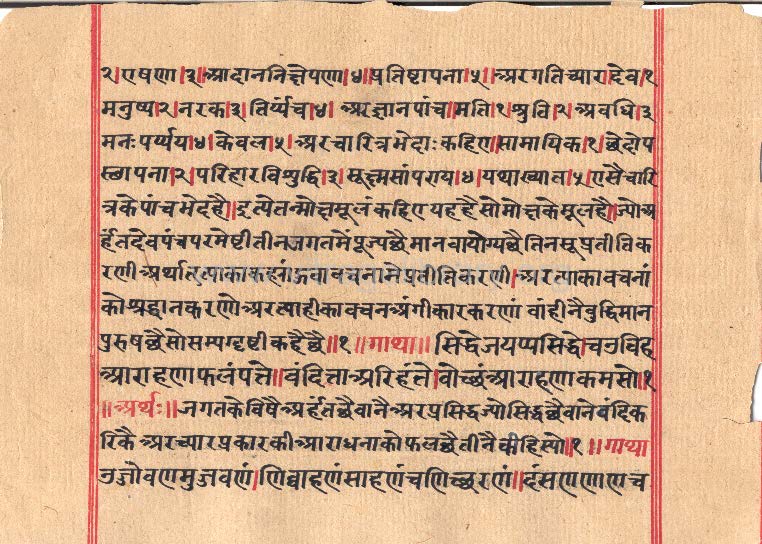 २। एषणा।३। आदाननिक्षेपणा।४। प्रतिष्टापना।५। अरगतिच्यारादेव१
मनुष्य।२। नरक।३। तिर्य्यंच।४। अरज्ञानपांच।मति।१श्रुति।२। अवधि।३
मनःपर्य्यय।४। केवल।५। अरचारित्रभेदाः कहिए।सामायिक।१।छेदोप
स्छापना।२। परिहारविशुद्धि।३। सूक्ष्मसांपराय।४।यथाख्यात।५।एसैचारि
त्रकेपांचभेदहै।इत्येतन्मोक्षमूलंकहिएयहहैसोमोक्षकेमूलहै।ज्योअ
र्हंतदेवपंचपरमेष्टीतीनजगतमेंपूज्यछैमानवायोग्यछैतिनसूप्रतीतिक
रणीअर्थात् प्रतीतिकरणी।अर वचनां
कोश्रद्धानकरणोअरत्याहीकावचनअंगीकारकरणां वांहीनैबुद्धिमान
पुरुषछैसोसम्यग्दृष्टीकहैछै॥१॥गाथा॥सिद्धेजयप्पसिद्धेचउविह
आराहणाफलंपत्ते॥वंदित्ताअरिहंते।वोच्छंआराहणाकमसो॥१
॥अर्थः॥जगतकेविषैअर्हंतछैवानैअरप्रसिद्धज्योसिद्धछैवानेवंदिक
रिकैअरच्यारप्रकारकीआराधनाकोफलछैतीनै ॥१॥गाथा
उज्जोवणमुज्जवणं।णिव्वाहणंसाहणंचणिच्छरणं॥दंसणणाणच